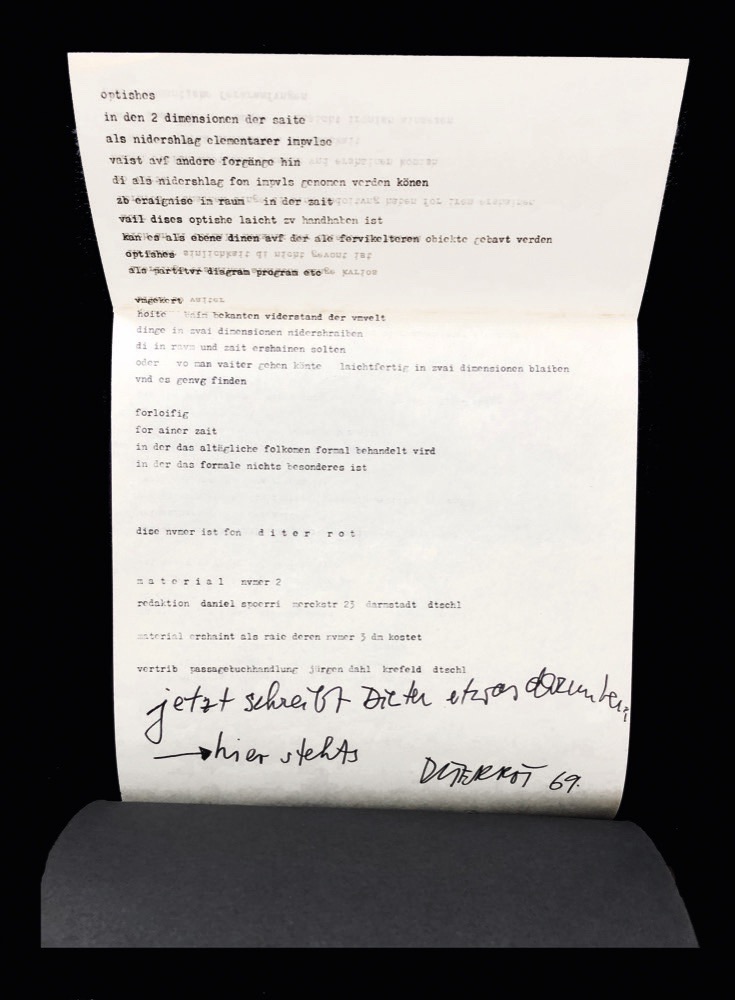 optishes
in den 2 dimensionen der saite
als nidershlag elementarer impvlse
vaist avf andere forgänge hin
di als nidershlag fon impvls genomen verden könen
zb eraignise in raum in der zait
vail dises optishe laicht zv handhaben ist
kan es als ebene dinen avf der ale forvikelteren obiekte gebavt verden
optishes
als partitvr diagram program etc
vmgekert
hoite baim bekanten viderstand der vmvelt
dinge in zvai dimensionen nidershraiben
di in ravm und zait ershainen solten
oder vo man vaiter gehen könte laichtfertig in zvai dimensionen blaiben
vnd es genvg finden
forloifig
for ainer zait
in der das altägliche folkomen formal behandelt vird
in der das formale nichts besonderes ist
dise nvmer ist fon d i t e r r o t
m a t e r i a l nvmer 2
redaktion daniel spoerri merckstr 23 darmstadt dtschl
material ershaint als raie deren nvmer 3 dm kostet
vertrib passagebuchhandlung jürgen dahl krefeld dtschl
jetzt schreibt Dieter etwas darunter,
→ hier stehts
DITERROT 69.